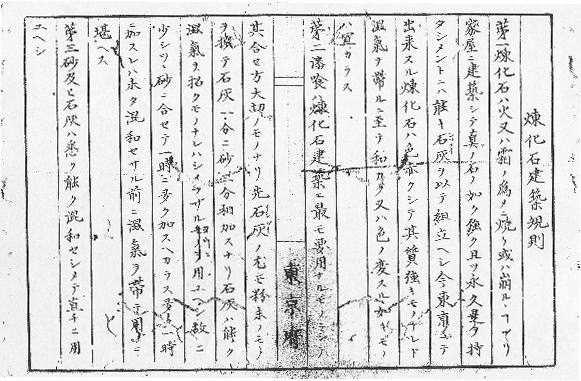 煉化石建築規則
第一煉化石ハ火又ハ霜ノ為メニ焼ケ或ハ崩ルヽ
家屋ニ建築シテ真ノ石ノ如ク強ク且ツ永久ク持
タシメントニハ能キ石灰ヲ以テ組立ヘシ今東京ニテ
出来スル煉化石ハ色赤クシテ其質強キモノナレド
湿氣ヲ帯ルニ至テ和カク又ハ色ノ変スル如キモノ
ハ宜カラス
第二漆喰ハ煉化石建築ニ最モ要用ナルモノニシテ
東京府
其合セ方大切ノモノナリ先石灰ノ尤モ粉末ノモノ
ヲ撰テ石灰一分ニ砂三分和加スナリ石灰ハ能ク
湿氣ヲ招クモノナレハシメラザル ヲ用ユヘシ故ニ
少シツヽ砂ニ合セテ一時ニ多ク加スヘカラス 一時
ニ加スレハ未タ混和セサル前ニ湿氣ヲ帯ヒ用ニ
堪ヘス
第三砂及ヒ石灰ハ悉ク能ク混和セシメテ直チニ用
ユヘシ